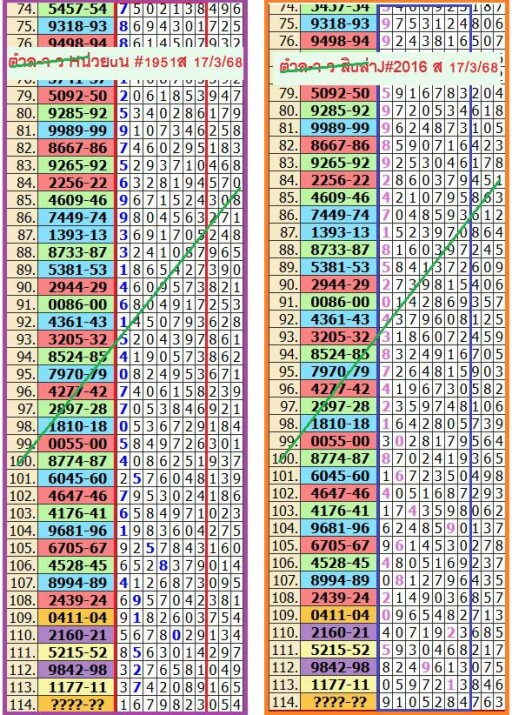 74. 5457-54 7 5 0 2 1 3 8 4 9 6
75. 9318-93 8 6 9 4 3 0 1 7 2 5
9498-94 8 6 1 4 5 0 7 9 3 2
#1951ส 17/3/68
79. 5092-50 2 0 6 1 8 5 3 9 4 7
80. 9285-92 5 3 4 0 2 8 6 1 7 9
81. 9989-99 9 1 0 7 3 4 6 2 5 8
82. 8667-86 7 4 6 0 2 9 5 1 8 3
83. 9265-92 5 2 9 3 7 1 0 4 6 8
84. 2256-22 6 3 2 8 1 9 4 5 7 0
85. 4609-46 9 6 7 1 5 2 4 3 0 8
86. 7449-74 9 8 0 4 5 6 3 2 7 1
87. 1393-13 3 6 9 1 7 0 5 2 4 8
88. 8733-87 3 2 4 1 0 8 7 9 6 5
89. 5381-53 1 8 6 5 4 2 7 3 9 0
90. 2944-29 4 6 0 9 5 7 3 8 2 1
91. 0086-00 6 8 0 4 9 1 7 2 5 3
92. 4361-43 1 4 5 0 7 9 3 6 2 8
93. 3205-32 5 2 0 4 3 9 7 8 6 1
94. 8524-85 4 1 9 0 5 7 3 8 6 2
95. 7970-79 0 8 2 4 9 5 3 6 7 1
96. 4277-42 7 4 0 6 1 5 8 2 3 9
97. 2897-28 7 0 5 3 8 4 6 9 2 1
98. 1810-18 0 5 3 6 7 2 9 1 8 4
99. 0055-00 5 8 4 9 7 2 6 3 0 1
100. 8774-87 4 0 8 6 2 5 1 9 3 7
101. 6045-60 2 5 7 6 0 4 8 1 3 9
102. 4647-46 7 9 5 3 0 2 4 1 8 6
103. 4176-41 6 5 8 4 9 7 1 0 2 3
104. 9681-96 1 9 8 3 6 0 4 2 7 5
105. 6705-67 9 2 5 7 8 4 3 1 6 0
106. 4528-45 6 5 2 8 3 7 9 0 1 4
107. 8994-89 4 1 2 6 8 7 3 0 9 5
108. 2439-24 6 9 5 7 0 4 2 3 8 1
109. 0411-04 9 1 8 2 6 0 3 7 5 4
110. 2160-21 5 6 7 8 0 2 9 1 3 4
111. 5215-52 8 5 6 3 0 1 4 2 9 7
112. 9842-98 3 2 7 6 5 8 1 0 4 9
113. 1177-11 3 7 4 2 0 8 9 1 6 5
114. ????-?? 1 6 7 9 8 2 3 0 5 4
74. 5457-54
75. 9318-93 9 7 5 3 1 2 4 8 0 6
76. 9498-94 9 2 4 3 8 1 6 5 0 7
#2016 ส 17/3/68
79. 5092-50 5 9 1 6 7 8 3 2 0 4
80. 9285-92 9 7 2 0 5 3 4 6 1 8
81. 9989-99 9 6 2 4 8 7 3 1 0 5
82. 8667-86 8 5 9 0 7 1 6 4 2 3
83. 9265-92 9 2 5 3 0 4 6 1 7 8
84. 2256-22 2 8 6 0 3 7 9 4 5 1
85. 4609-46 4 2 1 0 7 9 5 8 6 3
86. 7449-74 7 0 4 8 5 9 3 6 1 2
87. 1393-13 1 5 2 3 9 7 0 8 6 4
88. 8733-87 8 1 6 0 3 9 7 2 4 5
89. 5381-53 5 8 4 1 3 7 2 6 0 9
90. 2944-29 2 7 3 9 8 1 5 4 0 6
91. 0086-00 0 1 4 2 8 6 9 3 5 7
92. 4361-43 4 3 7 9 6 0 8 1 2 5
93. 3205-32 3 1 8 6 0 7 2 4 5 9
94. 8524-85 8 3 2 4 9 1 6 7 0 5
95. 7970-79 7 2 6 4 8 1 5 9 0 3
96. 4277-42 4 1 9 6 7 3 0 5 8 2
97. 2897-28 2 3 5 9 7 4 8 1 0 6
98. 1810-18 1 6 4 2 8 0 5 7 3 9
99. 0055-00 3 0 2 8 1 7 9 5 6 4
100. 8774-87 8 7 0 2 4 1 9 3 6 5
101. 6045-60 1 6 7 2 3 5 0 4 9 8
102. 4647-46 4 0 5 1 6 8 7 2 9 3
103. 4176-41 1 7 4 3 5 9 8 0 6 2
104. 9681-96 6 2 4 8 5 9 0 1 3 7
105. 6705-67 9 6 1 4 5 3 0 2 7 8
106. 4528-45 4 8 0 5 1 6 9 2 3 7
107. 8994-89 0 8 1 2 7 9 6 4 3 5
108. 2439-24 2 1 4 9 0 3 6 8 5 7
109. 0411-04 0 9 6 5 4 8 2 7 1 3
110. 2160-21 4 0 7 1 9 2 3 6 8 5
111. 5215-52 5 9 3 0 4 6 8 2 1 7
112. 9842-98 8 2 4 9 6 1 3 0 7 5
113. 1177-11 0 5 9 7 2 1 3 8 4 6
114. ????-?? 9 1 0 5 2 8 4 7 6 3